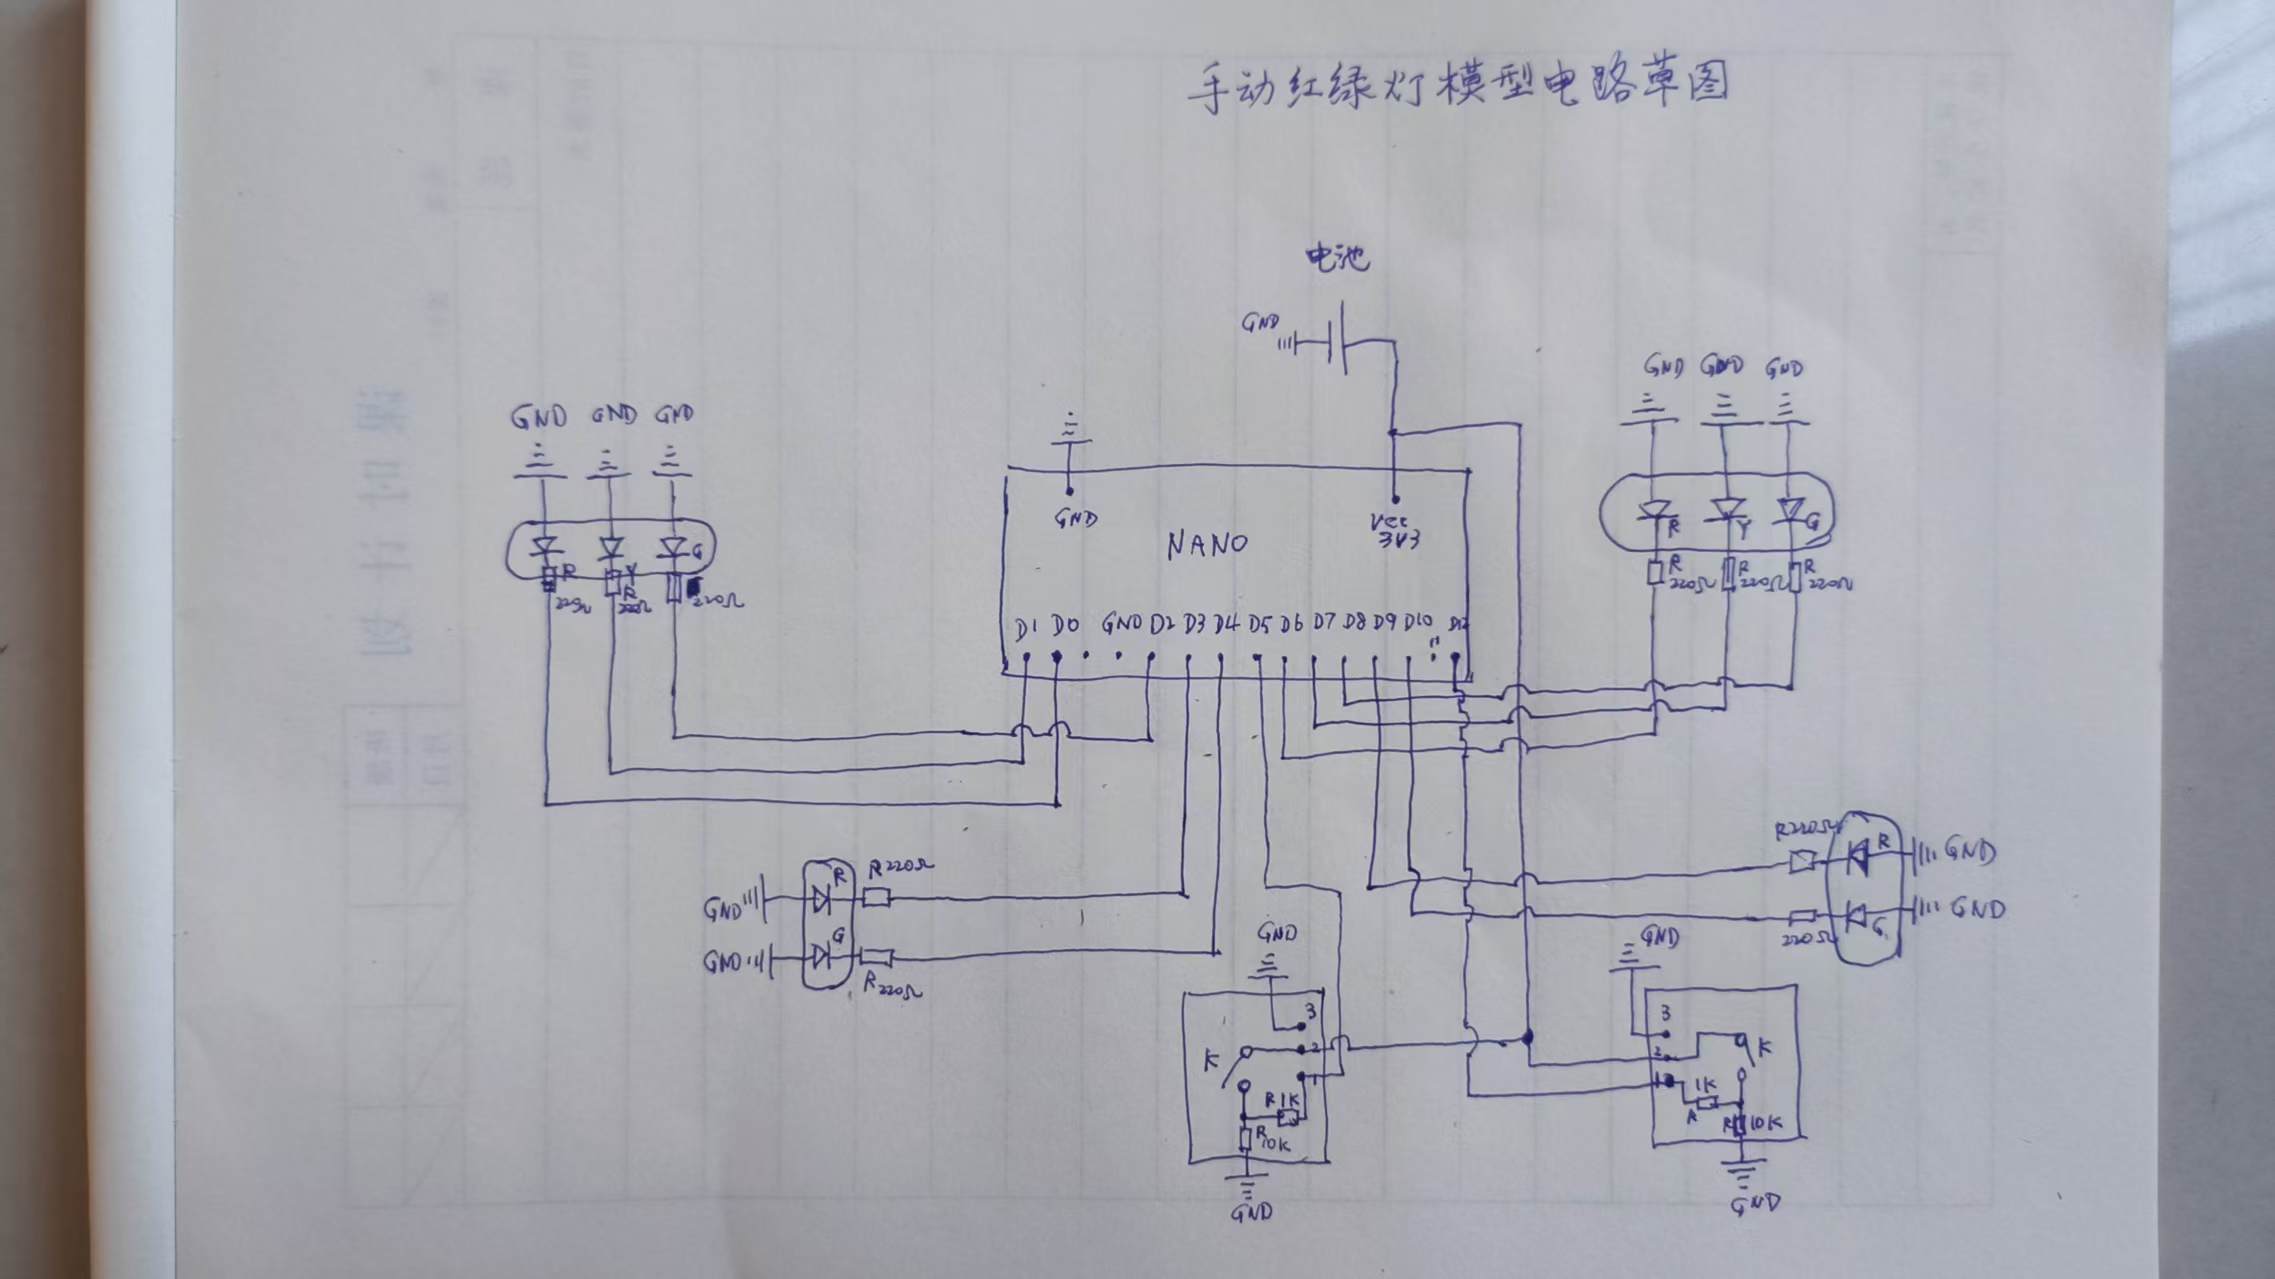 手动红绿灯模型电路草图
电池
GND
GND GND GND
GND GND GND
R Y G
R
220Ω
R
220Ω
R
220Ω
R Y G
220Ω
R
220Ω
220Ω
GND
VCC
3V3
NANO
D1 D0 GND D2 D3 D4 D5 D6 D7 D8 D9 D10 11 D12
R220Ω
R
GND
G
GND
220Ω
R
R220Ω
GND
G
GND
R220Ω
GND
3
2
1
K
R1K
R
10K
GND
GND
3
2
1
K
1K
R
R 10K
GND